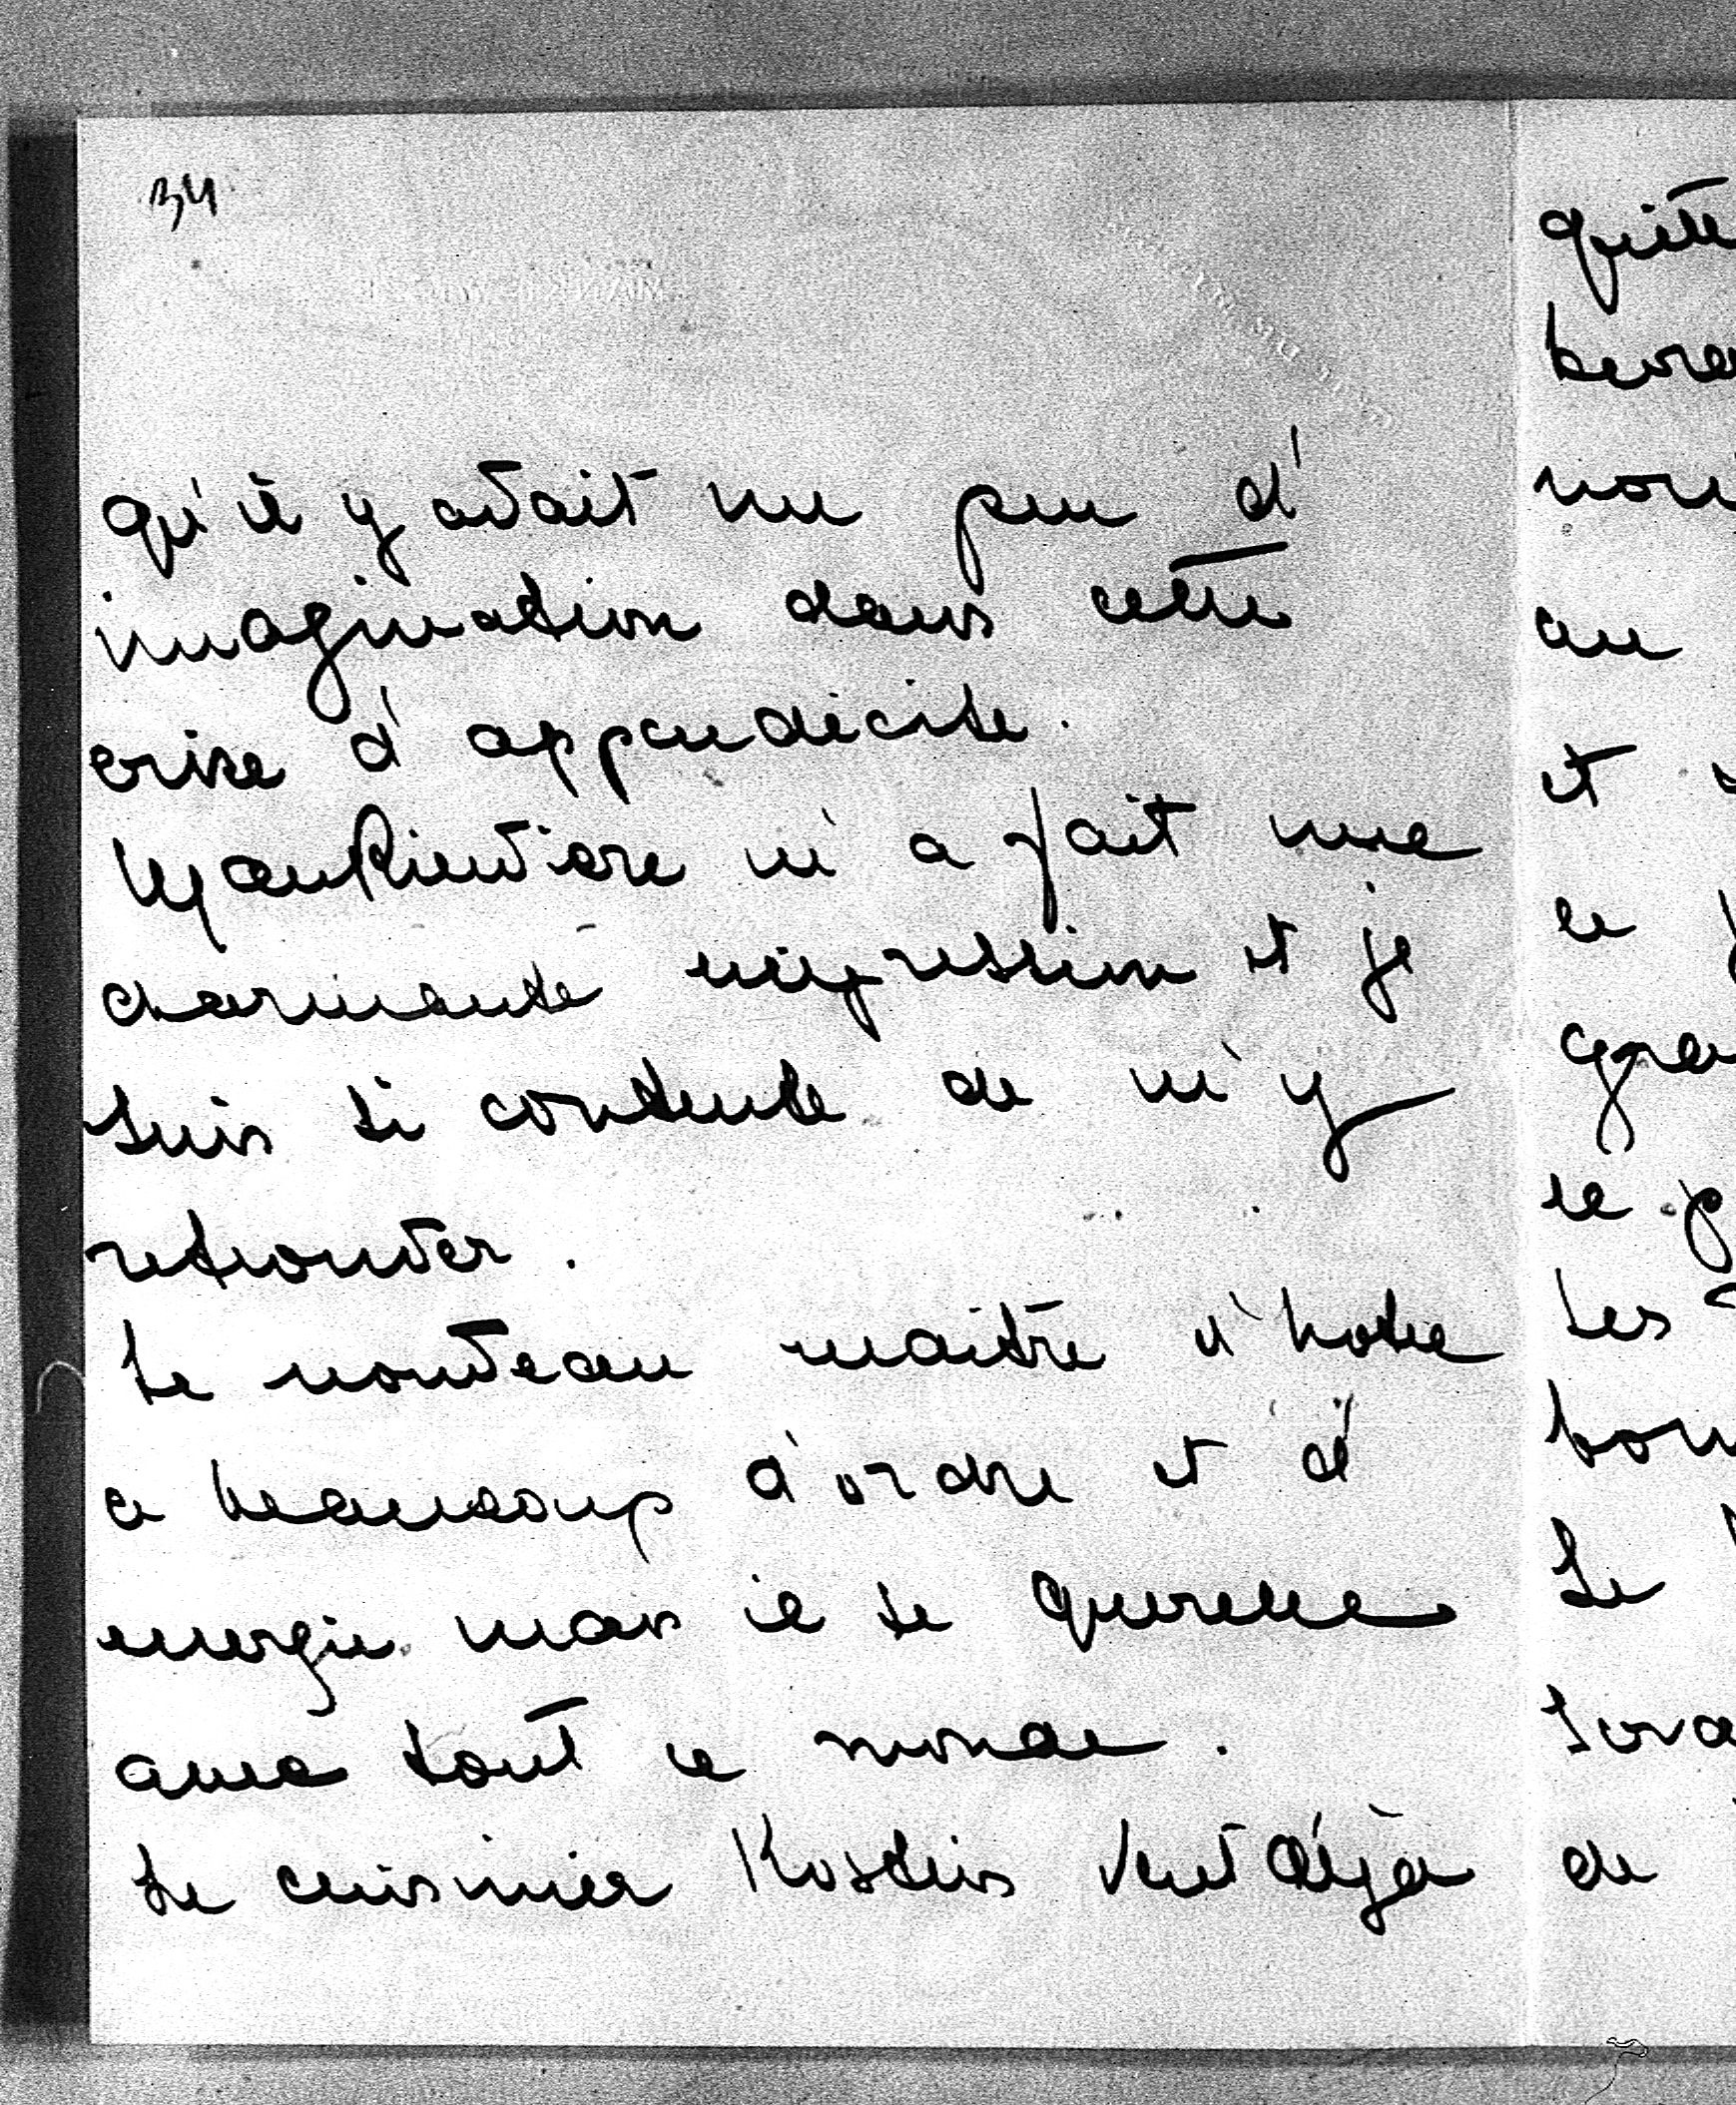 34
qu'il y avait un peu d'
imagination dans cette
crise d'appendicite.
Mankiewiore m'a fait une
charmante impression et je
suis si contente de m'y
retrouver.
Le nouveau maitre d'hotel
a beaucoup d'ordre et d'
energie mais il se querelle
avec tout le monde.
Le cuisinier Kostus veut déjà
quitte
nou
au
et
le
gra
le p
Les
bou
Le
de